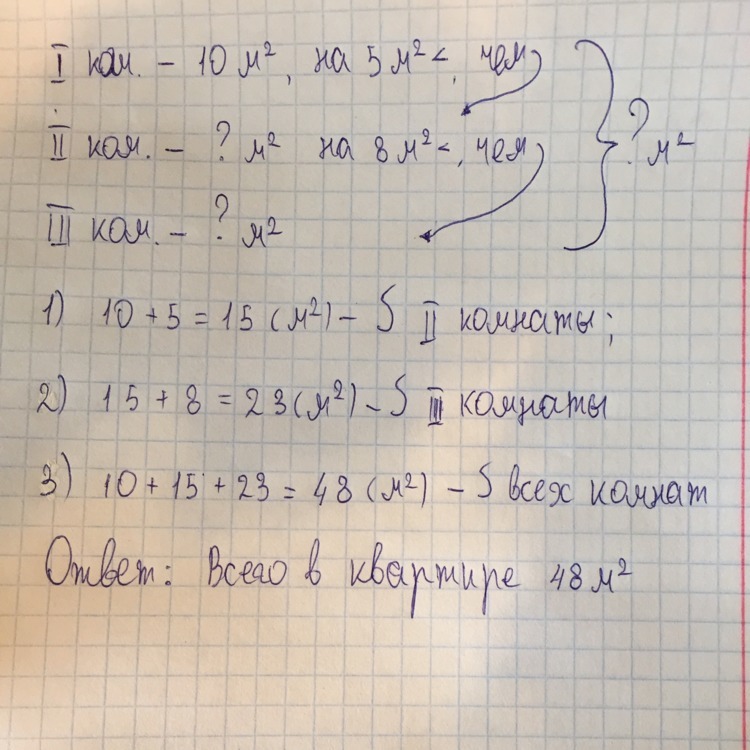 I ком. - 10 м², на 5 м² <, чем
II ком. - ? м² на 8 м² <, чем
? м²
III ком. - ? м²
1) 10 + 5 = 15 (м²) - S II комнаты;
2) 15 + 8 = 23 (м²) - S III комнаты
3) 10 + 15 + 23 = 48 (м²) - S всех комнат
Ответ: Всего в квартире 48 м²